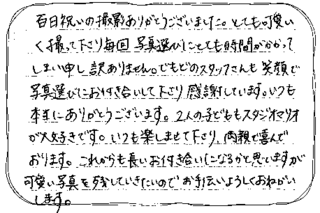 百日祝いの撮影ありがとうございました。とても可愛い
く撮って下さり毎回写真選びにとても時間がかかって
しまい申し訳ありません。でもどのスタッフさんも笑顔で
写真選びにお付き合いして下さり感謝しています。いつも
本当にありがとうございます。2人の子どももスタジオマリオ
が大好きです。いつも楽しませて下さり、両親で喜んで
おります。これからも長いお付き合いになるかと思いますが
可愛い写真を残していきたいのでお手伝いよろしくおねがい
します。